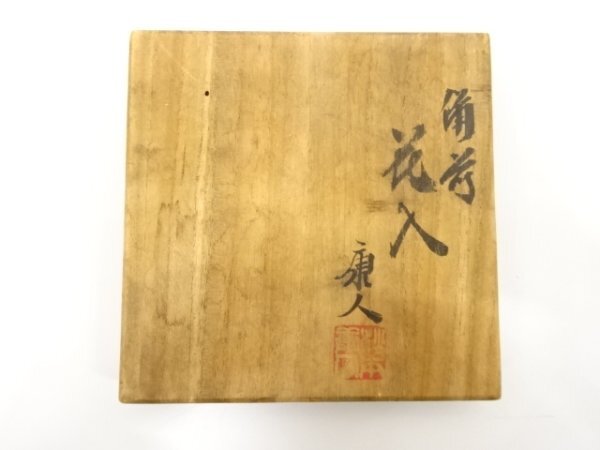 備前
花入
康人